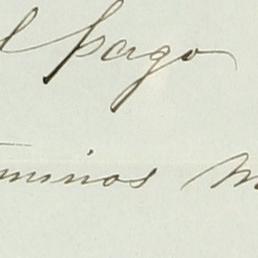 l pago
minos m